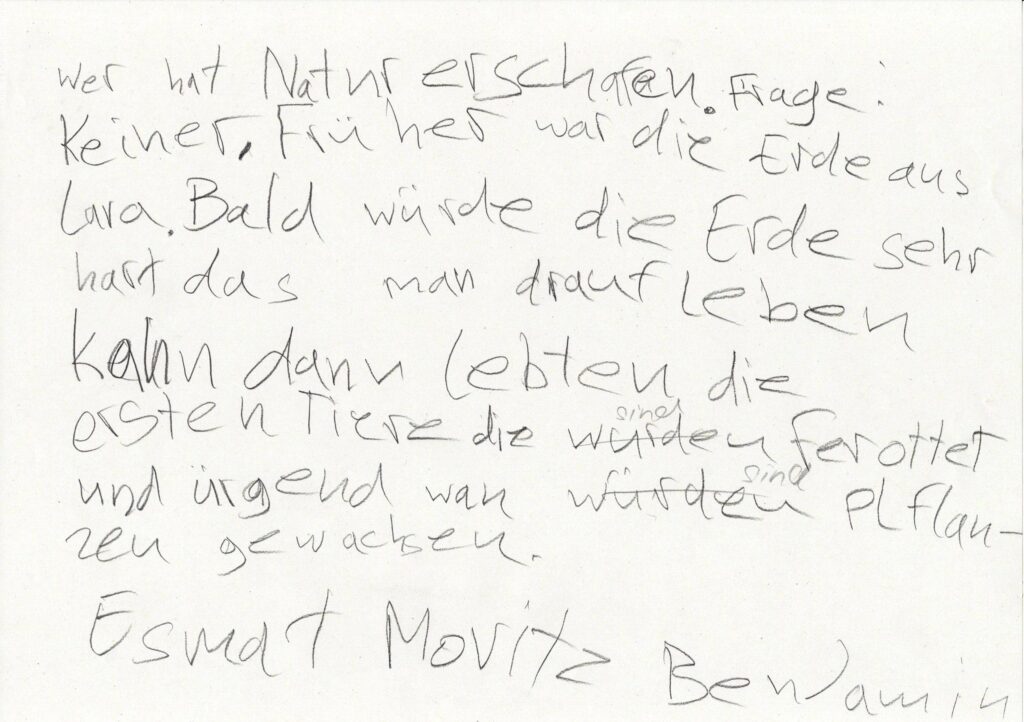 wer hat Natur erschafen. Frage:
Keiner. Früher war die Erde aus
Lava. Bald würde die Erde sehr
hart das man drauf leben
kahn dann lebten die
ersten Tiere die sind würden ferottet
und ürgend wan sind würden Plflan-
zen gewachsen.
Esmat Moritz Benjamin